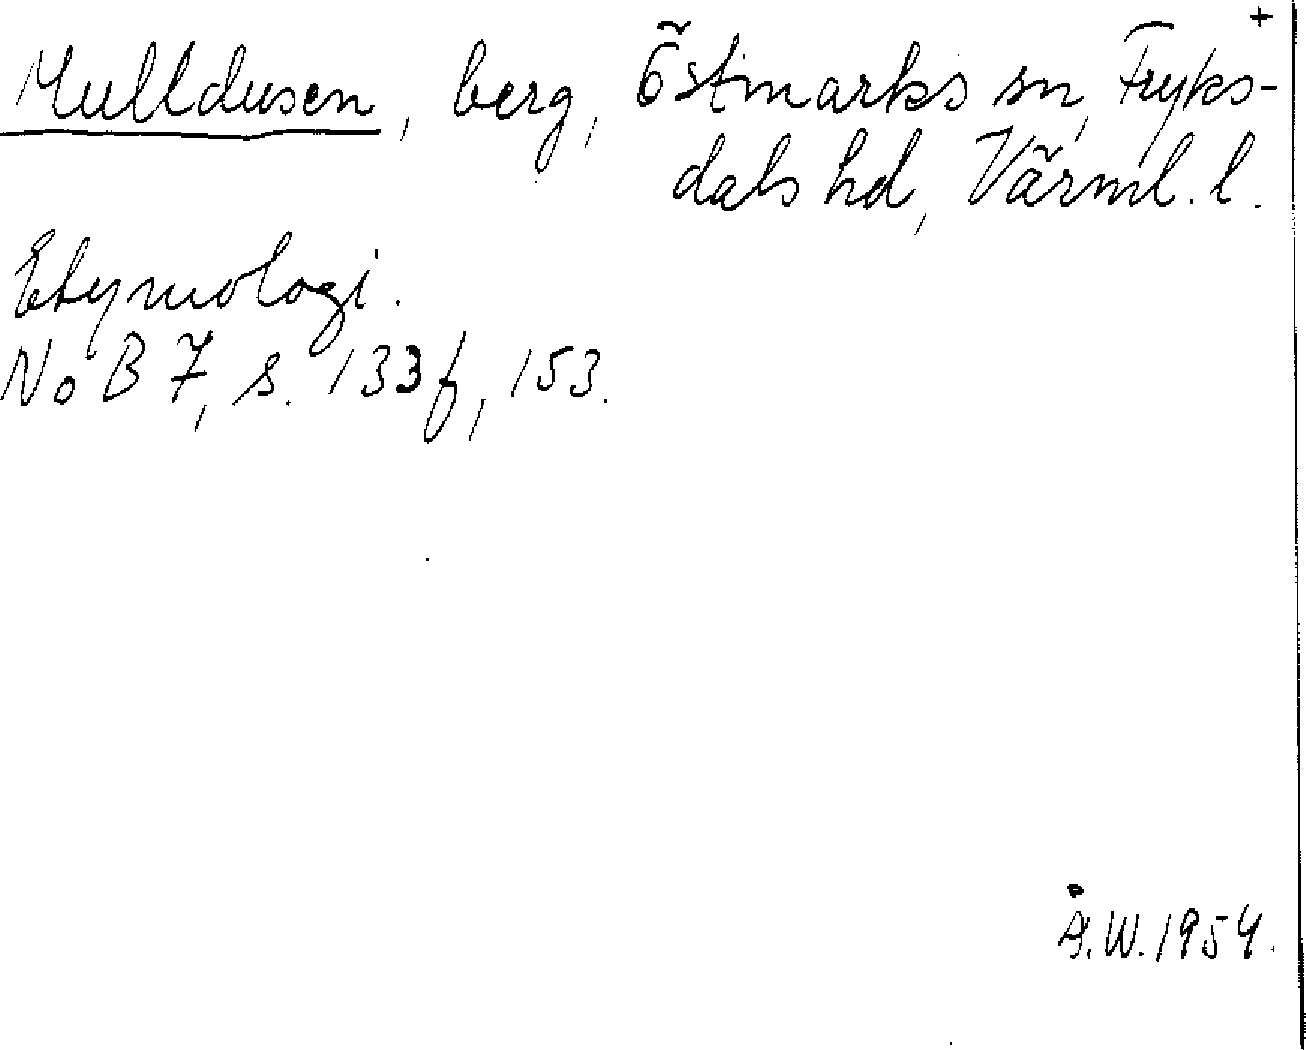 +
Mulldusen, berg, Östmarks sn, Fryks-
dals hd, Värml. l.
Etymologi.
NoB 7, s. 133f, 153.
Å.W. 1954.